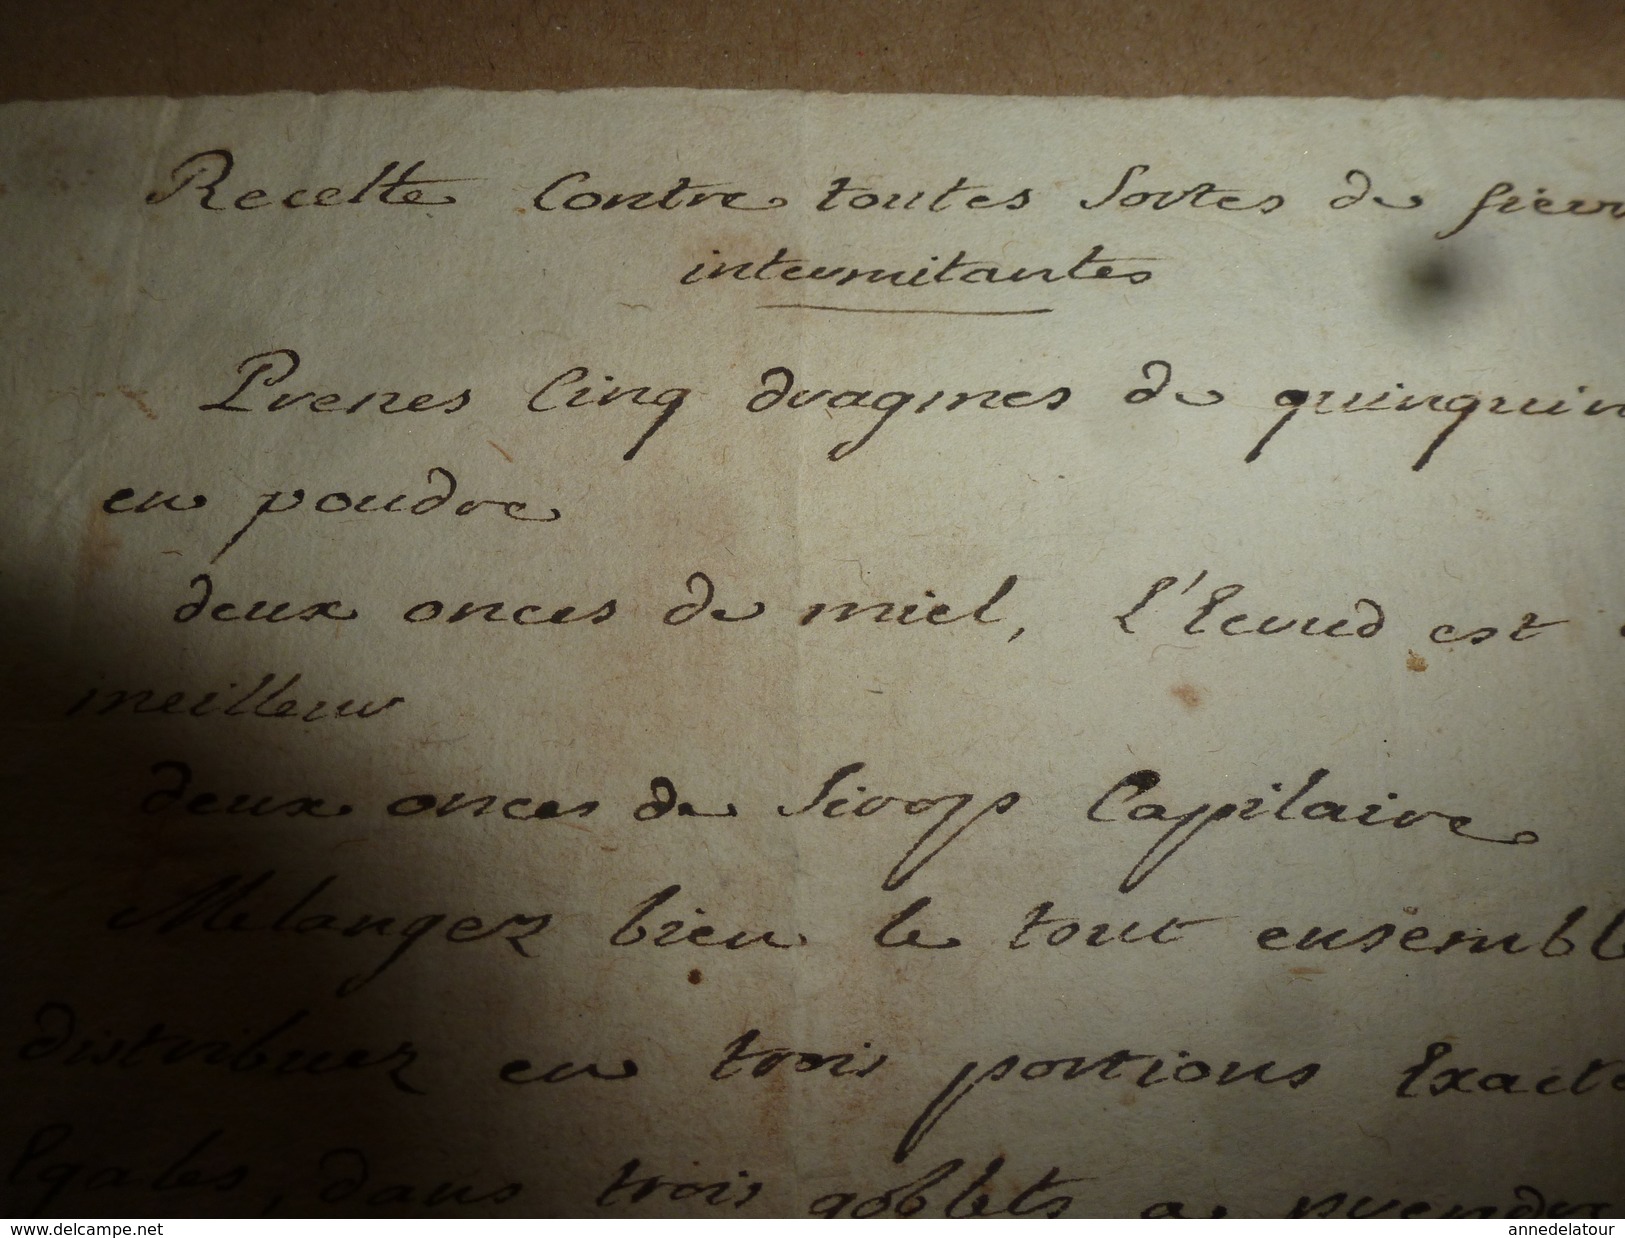 Recette Contre toutes Sortes de fievr
intermitantes
Prenes Cinq dragmes de quinquin
en poudre
deux onces de miel, l'Ecrud est
meilleur
deux onces de Sirop Capilaire
Melangez bien le tout ensemble
distribuez en trois portions Exacte
Egales, dans trois goblets a prendre
www.delcampe.net
annedelatour